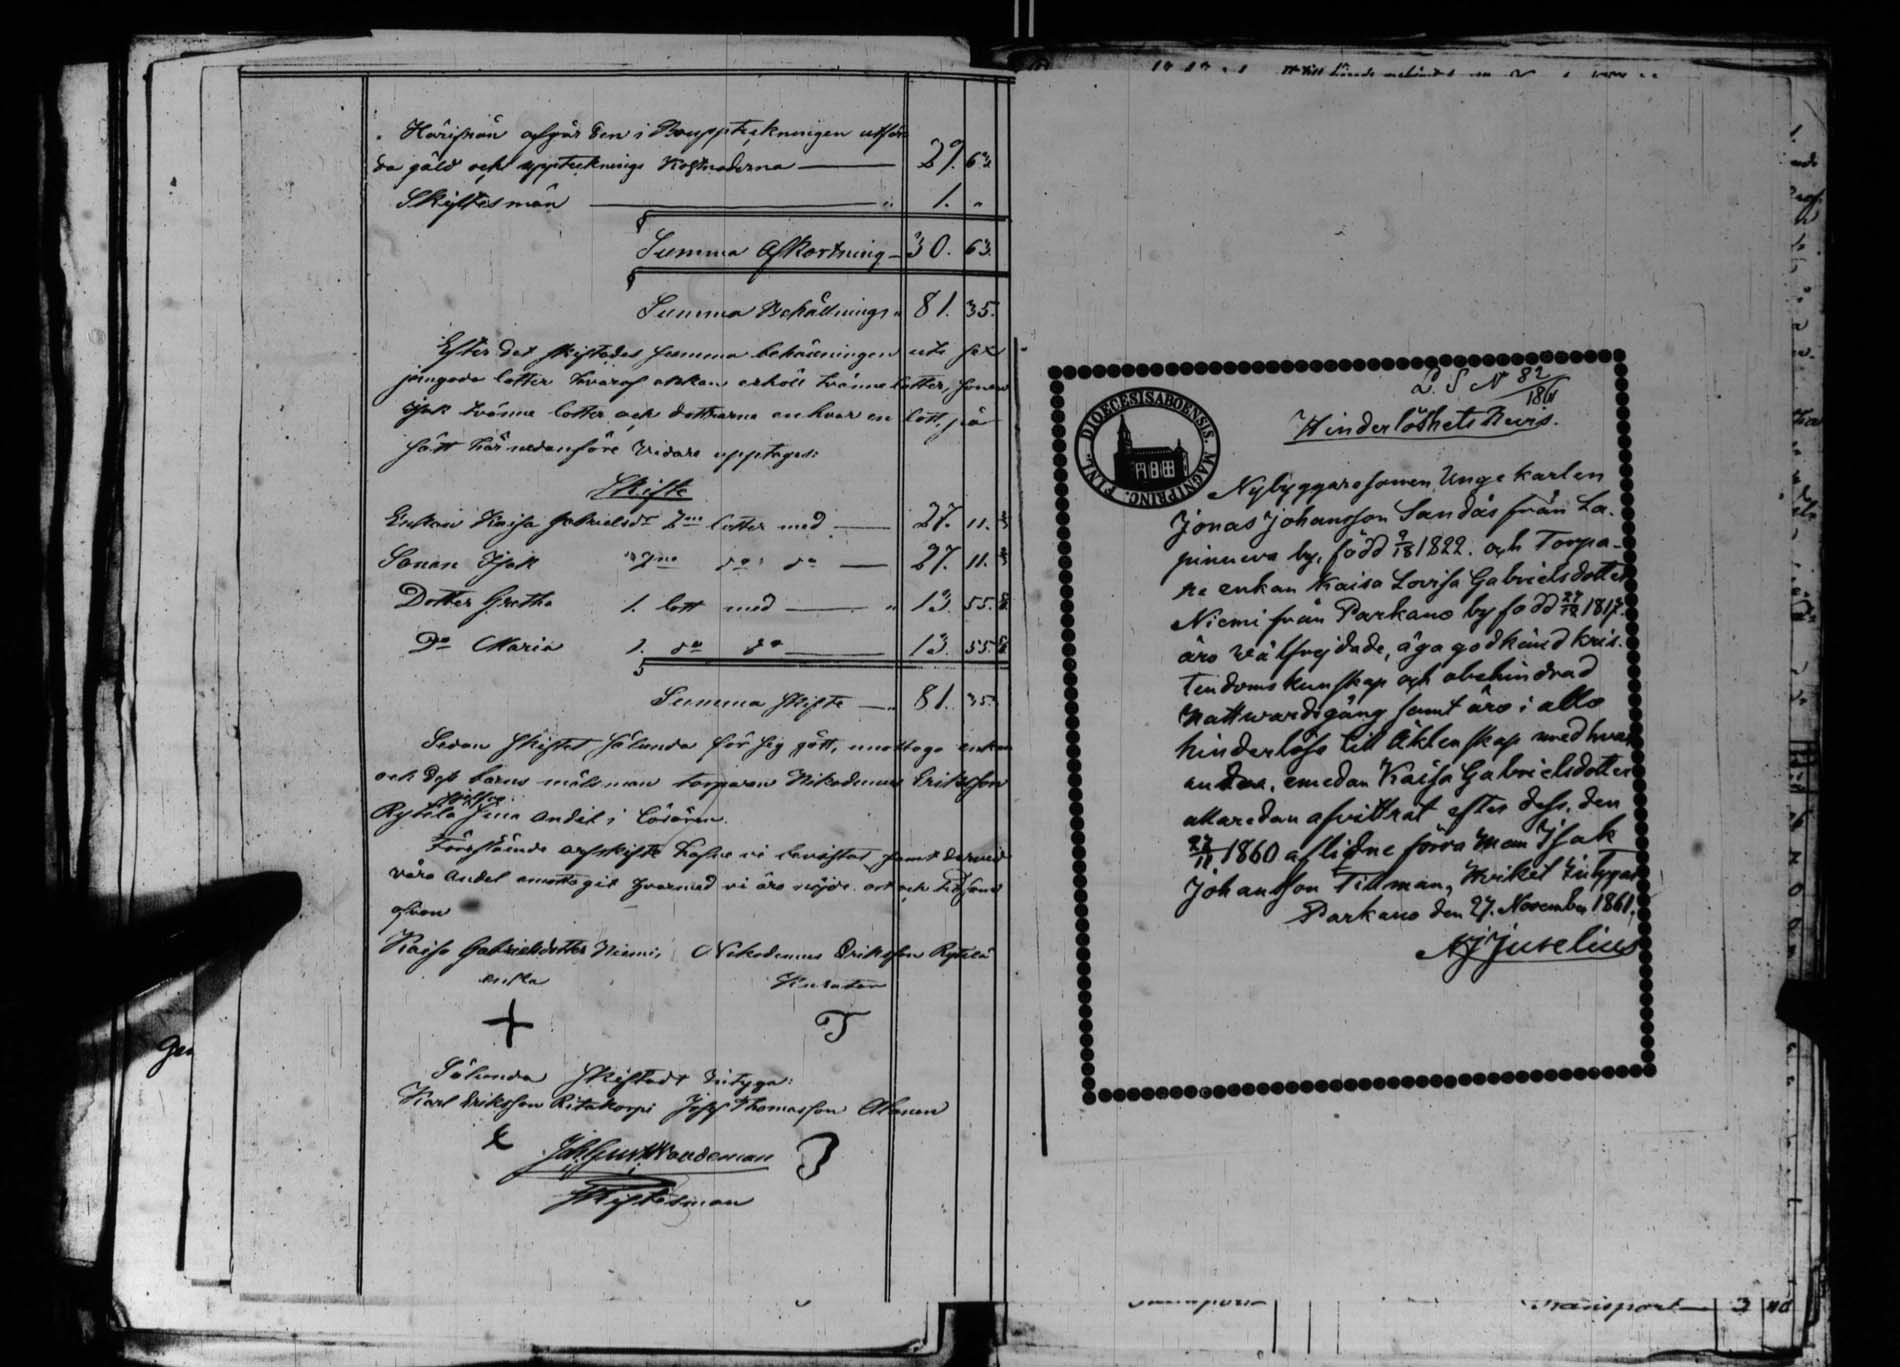 Härifrån afgår den i Bouppteckningen utför
da gäld och upptecknings Kostnaderna — 29. 63.
Skiftesmän — " 1. "
Summa Afkortning — 30. 63.
Summa Behållning " 81. 35.
Efter det skiftades summa behållningen uti sex
jemgoda lotter hvaraf enkan erhöll tvänne lotter, sonen
Isak tvänne lotter och döttrarne en hvar en lott, på
sätt här nedanföre vidare upptages:
Skifte
Enkan Kaisa Gabrielsdr 2ne lotter med — 27. 11.
Sonen Isak " 2ne do do — 27. 11.
Dotter Gretha 1. lott med — " 13. 55.
Do Maria 1. do do — 13. 55.
Summa skifte — " 81. 35.
Sedan skiftet sålunda för sig gått, emottogo enkan
och dess barns målsman torparen Nikodemus Eriksson
Rytilä sine andel i lösören.
Förestående arfskifte hafve vi bevistat samt derved
våra andel emottagit hvarmed vi äro nöjde. ort och tid som
ofvan
Kaisa Gabrielsdotter Niemi, Nikodemus Eriksson Rytilä
enka Kurator
Sålunda skiftadt intyga:
Karl Eriksson Ritakorpi Josef Thomasson Alanen
Skiftesman
Gen
L. S. N 82/1861
Hinderlöshets Bevis.
DIOECESIS ABOENSIS. MAGNI PRINC. FINL.
Nybyggaresonen Ungekarlen
Jonas Johansson Sandås från La-
pinneva by, född 9/18 1822. och Torpa-
re enkan Kaisa Lovisa Gabrielsdotter
Niemi från Parkano by född 1817.
äro välfrejdade, äga godkänd kris-
tendomskunskap och obehindrad
Nattwardsgång samt äro i allo
hinderlöse till Äktenskap med hvar
andra, emedan Kaisa Gabrielsdotter
allaredan afvittrat efter dess, den
27/11 1860 aflidne förra Man Isak
Johansson Tillman, Hvilket Intygar
Parkano den 27. November 1861.
A J Juselius
Transport 3